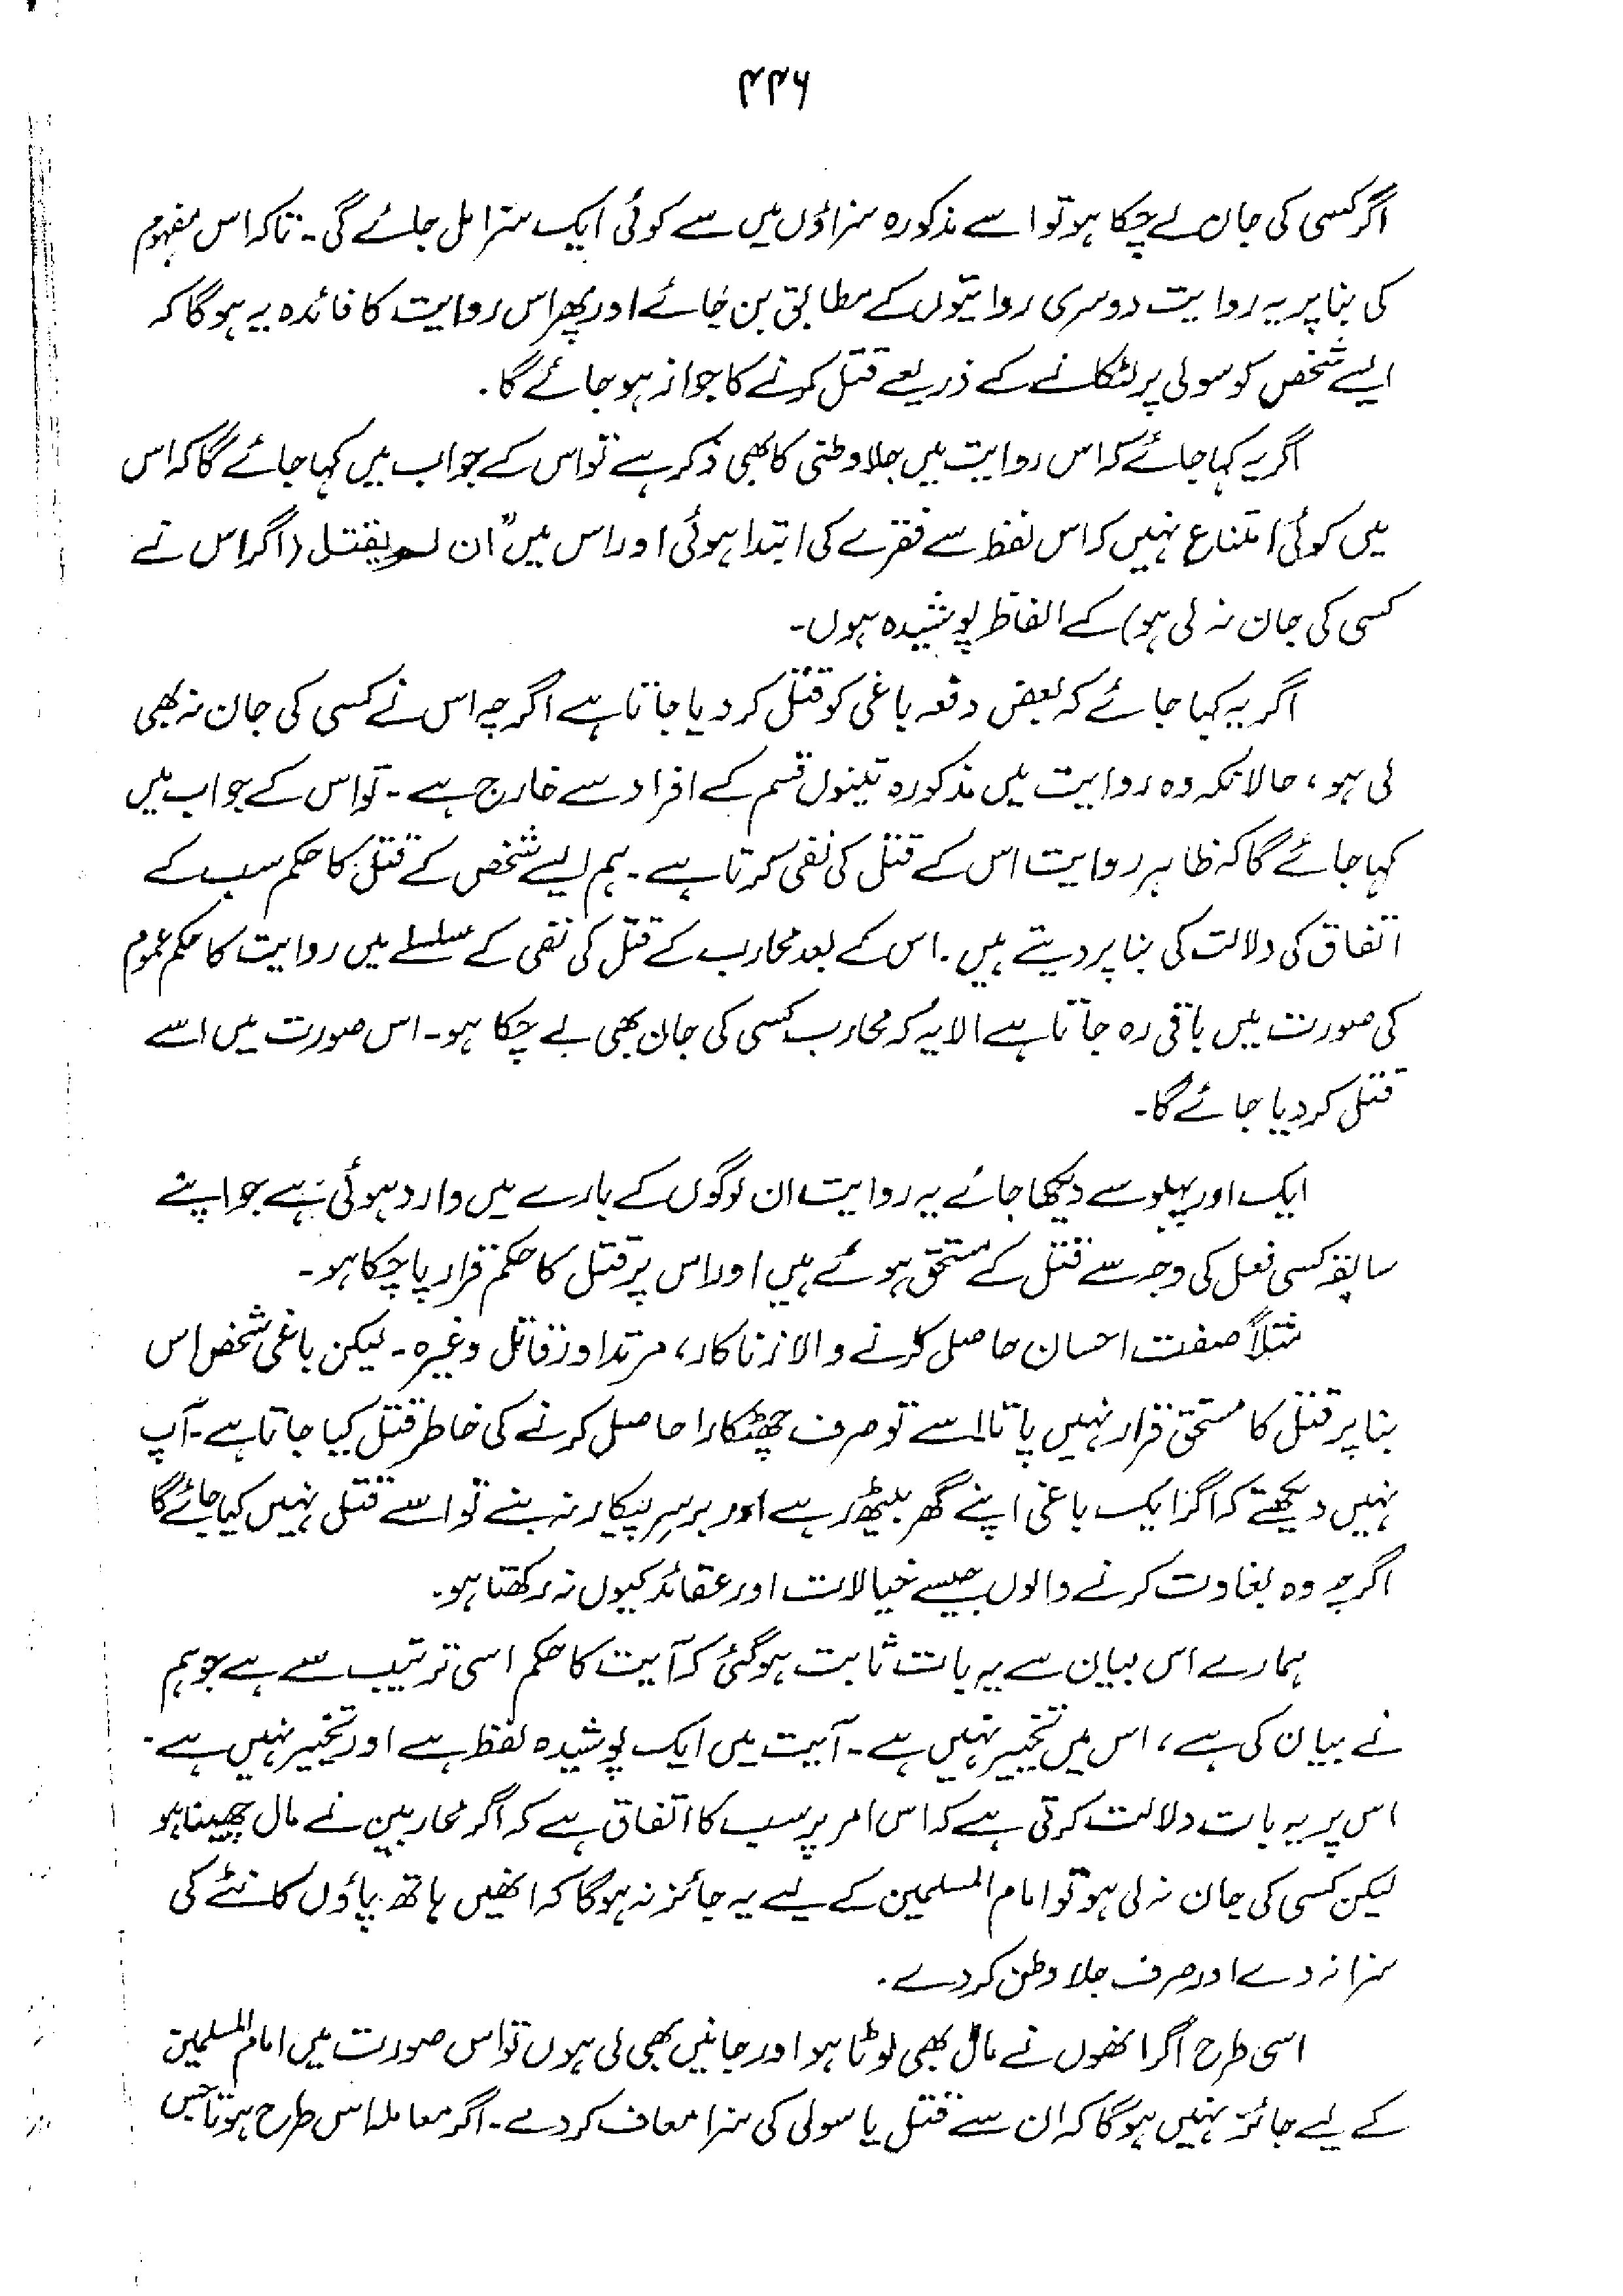 ۴۴۶
اگر کسی کی جان لے چکا ہو تو اسے مذکورہ سزاؤں میں سے کوئی ایک سزا مل جائے گی۔ تاکہ اس مفہوم
کی بنا پر یہ روایت دوسری روایتوں کے مطابق بن جائے اور پھر اس روایت کا فائدہ یہ ہوگا کہ
ایسے شخص کو سولی پر لٹکانے کے ذریعے قتل کرنے کا جواز ہو جائے گا۔
اگر یہ کہا جائے کہ اس روایت میں جلاوطنی کا بھی ذکر ہے تو اس کے جواب میں کہا جائے گا کہ اس
میں کوئی امتناع نہیں کہ اس لفظ سے فقرے کی ابتدا ہوئی اور اس میں "ان لم یقتل (اگر اس نے
کسی کی جان نہ لی ہو) کے الفاظ پوشیدہ ہوں۔
اگر یہ کہا جائے کہ بعض دفعہ باغی کو قتل کر دیا جاتا ہے اگرچہ اس نے کسی کی جان نہ بھی
لی ہو، حالانکہ وہ روایت میں مذکورہ تینوں قسم کے افراد سے خارج ہے۔ تو اس کے جواب میں
کہا جائے گا کہ ظاہر روایت اس کے قتل کی نفی کرتا ہے۔ ہم ایسے شخص کے قتل کا حکم سب کے
اتفاق کی دلالت کی بنا پر دیتے ہیں۔ اس کے بعد محارب کے قتل کی نفی کے سلسلے میں روایت کا حکم عموم
کی صورت میں باقی رہ جاتا ہے الا یہ کہ محارب کسی کی جان بھی لے چکا ہو۔ اس صورت میں اسے
قتل کر دیا جائے گا۔
ایک اور پہلو سے دیکھا جائے یہ روایت ان لوگوں کے بارے میں وارد ہوئی ہے جو اپنے
سابقہ کسی فعل کی وجہ سے قتل کے مستحق ہوئے ہیں اور اس پر قتل کا حکم قرار پا چکا ہو۔
مثلاً صفت احسان حاصل کرنے والا زنا کار، مرتد اور قاتل وغیرہ۔ لیکن باغی شخص اس
بنا پر قتل کا مستحق قرار نہیں پاتا اسے تو صرف چھٹکارا حاصل کرنے کی خاطر قتل کیا جاتا ہے۔ آپ
نہیں دیکھتے کہ اگر ایک باغی اپنے گھر بیٹھ رہے اور برسر پیکار نہ بنے تو اسے قتل نہیں کیا جائے گا
اگرچہ وہ بغاوت کرنے والوں جیسے خیالات اور عقائد کیوں نہ رکھتا ہو۔
ہمارے اس بیان سے یہ بات ثابت ہو گئی کہ آیت کا حکم اسی ترتیب سے ہے جو ہم
نے بیان کی ہے، اس میں تخییر نہیں ہے۔ آیت میں ایک پوشیدہ لفظ ہے اور تخییر نہیں ہے۔
اس پر یہ بات دلالت کرتی ہے کہ اس امر پر سب کا اتفاق ہے کہ اگر محاربین نے مال چھینا ہو
لیکن کسی کی جان نہ لی ہو تو امام المسلمین کے لیے یہ جائز نہ ہوگا کہ انھیں ہاتھ پاؤں کاٹنے کی
سزا نہ دے اور صرف جلاوطن کر دے۔
اسی طرح اگر انھوں نے مال بھی لوٹا ہو اور جانیں بھی لی ہوں تو اس صورت میں امام المسلمین
کے لیے جائز نہیں ہوگا کہ ان سے قتل یا سولی کی سزا معاف کر دے۔ اگر معاملہ اس طرح ہوتا جس